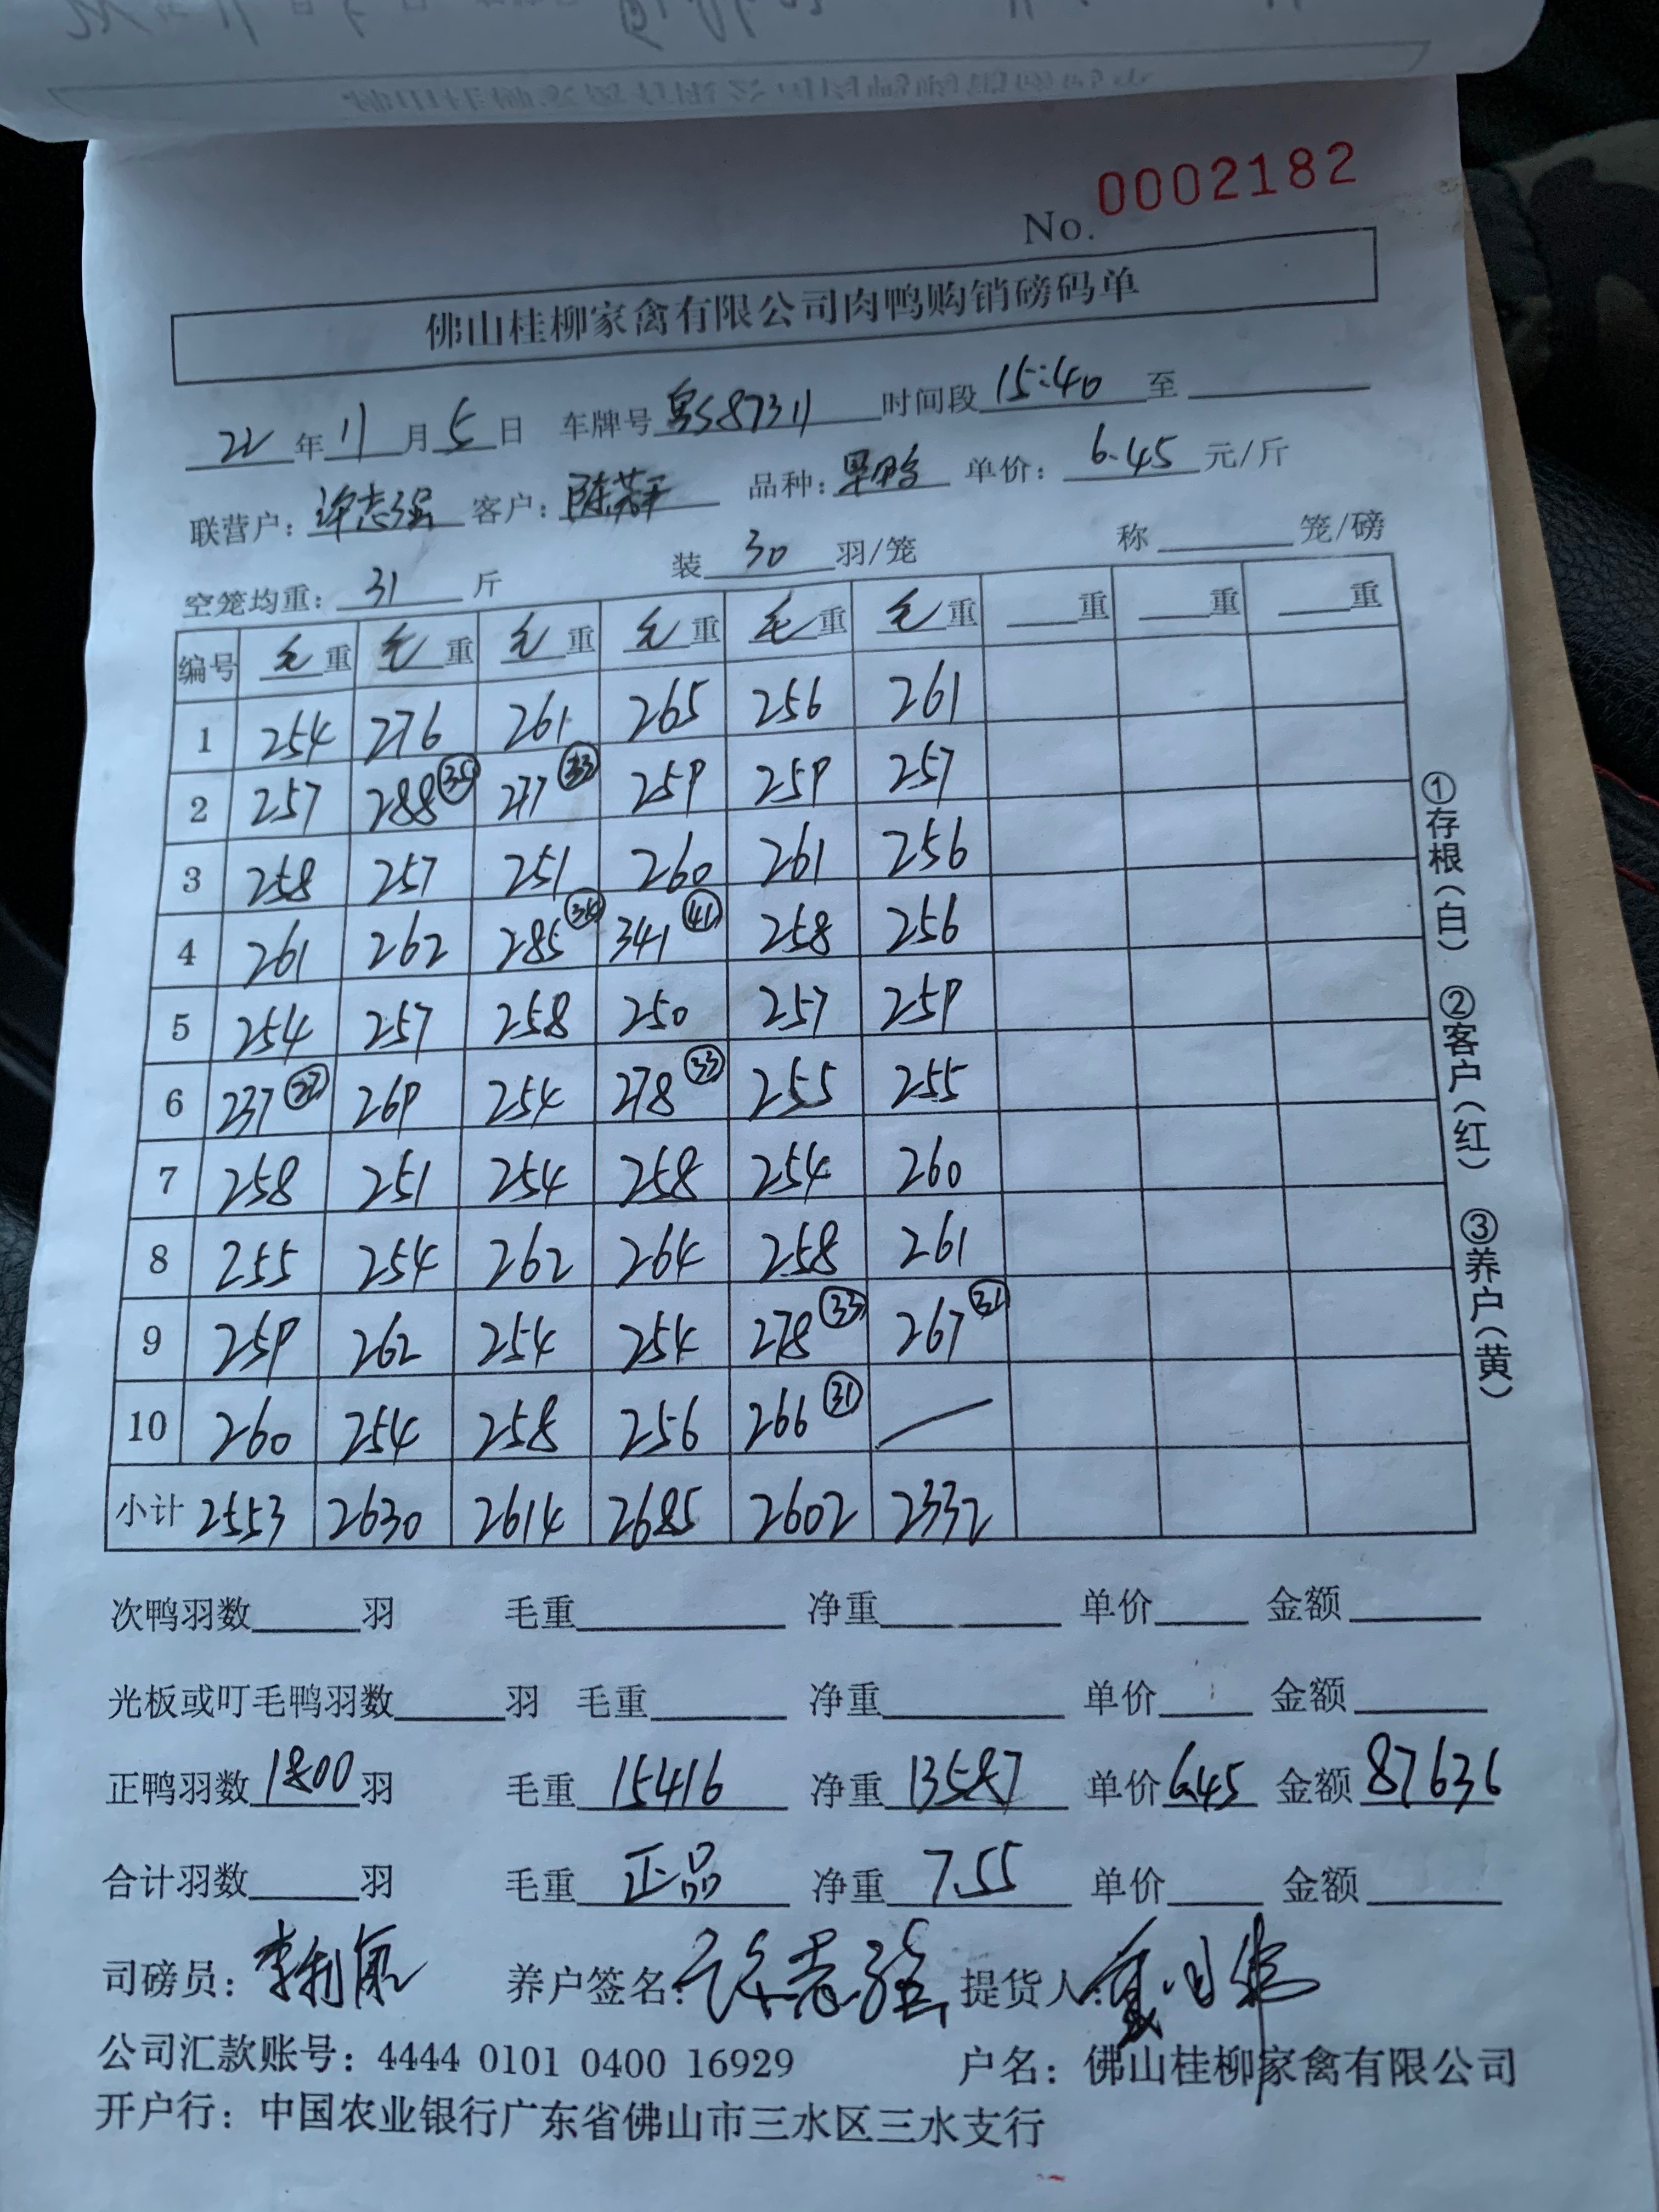 No. 0002182
佛山桂柳家禽有限公司肉鸭购销磅码单
22年11月5日 车牌号粤S87311时间段15:40至
联营户：许志强 客户：陈 品种： 单价：6.45元/斤
空笼均重：31斤 装30羽/笼 称 笼/磅
编号 毛重 毛重 毛重 毛重 毛重 毛重 重 重 重
1 254 276 261 265 256 261
2 257 288㉟ 277㉝ 259 259 257
3 258 257 251 260 261 256
4 261 262 285㉞ 341㊶ 258 256
5 254 257 258 250 257 259
6 237㉗ 269 254 278㉝ 255 255
7 258 251 254 258 254 260
8 255 254 262 264 258 261
9 259 262 254 254 278㉝ 267㉛
10 260 254 258 256 266㉛ /
小计 2553 2630 2614 2685 2602 2332
①存根(白) ②客户(红) ③养户(黄)
次鸭羽数 羽 毛重 净重 单价 金额
光板或叮毛鸭羽数 羽 毛重 净重 单价 金额
正鸭羽数1800羽 毛重15416 净重13587 单价6.45 金额87636
合计羽数 羽 毛重正品 净重7.55 单价 金额
司磅员： 养户签名：许志强 提货人：
公司汇款账号：4444 0101 0400 16929 户名：佛山桂柳家禽有限公司
开户行：中国农业银行广东省佛山市三水区三水支行